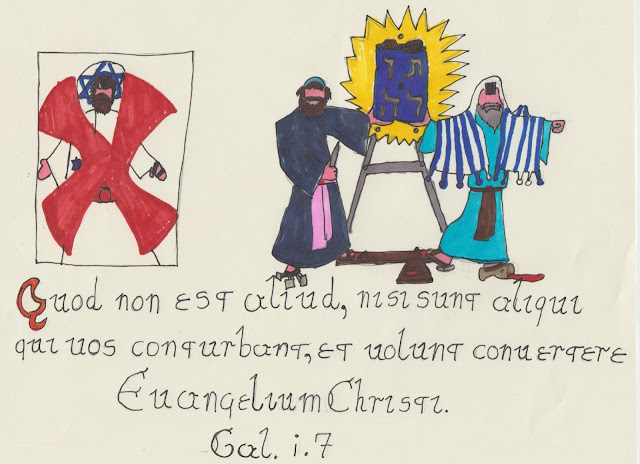 Quod non est aliud, nisi sunt aliqui
qui uos conturbant, et uolunt conuertere
Euangelium Christi.
Gal. i.7